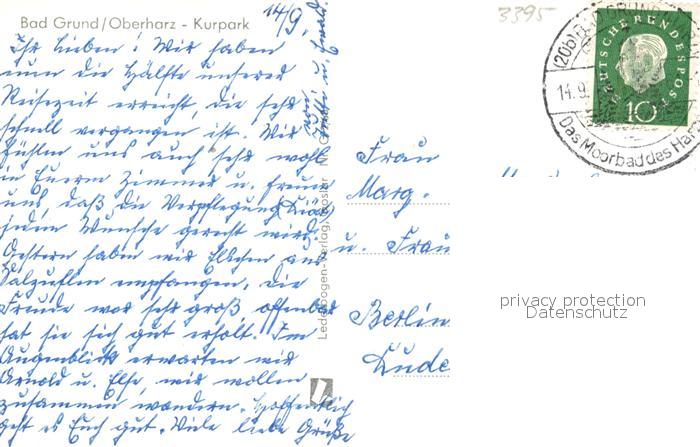 Bad Grund/Oberharz - Kurpark
14/9.
Ihr Lieben! Wir haben
nun die Hälfte unserer
Reisezeit erreicht, die sehr
schnell vergangen ist. Wir
fühlen uns auch sehr wohl
in Eurem Zimmer u. freuen
uns, daß die Verpflegung
jedem Wunsche gerecht wird.
Gestern haben wir Elbchen aus
Salzuflen empfangen, die
Freude war sehr groß, offenbar
hat sie sich gut erholt. Im
Augenblick erwarten wir
Arnold u. Else, wir wollen
zusammen wandern. Hoffentlich
geht es Euch gut. Viele liebe Grüße
von
u. Ewald.
Lederbogen-Verlag, Goslar Nr
3395
(20b) BAD GRUND
14.9.
Das Moorbad des Ha
DEUTSCHE BUNDESPOST
10
Frau
Marg.
u. Frau
Berlin
Lude
privacy protection
Datenschutz